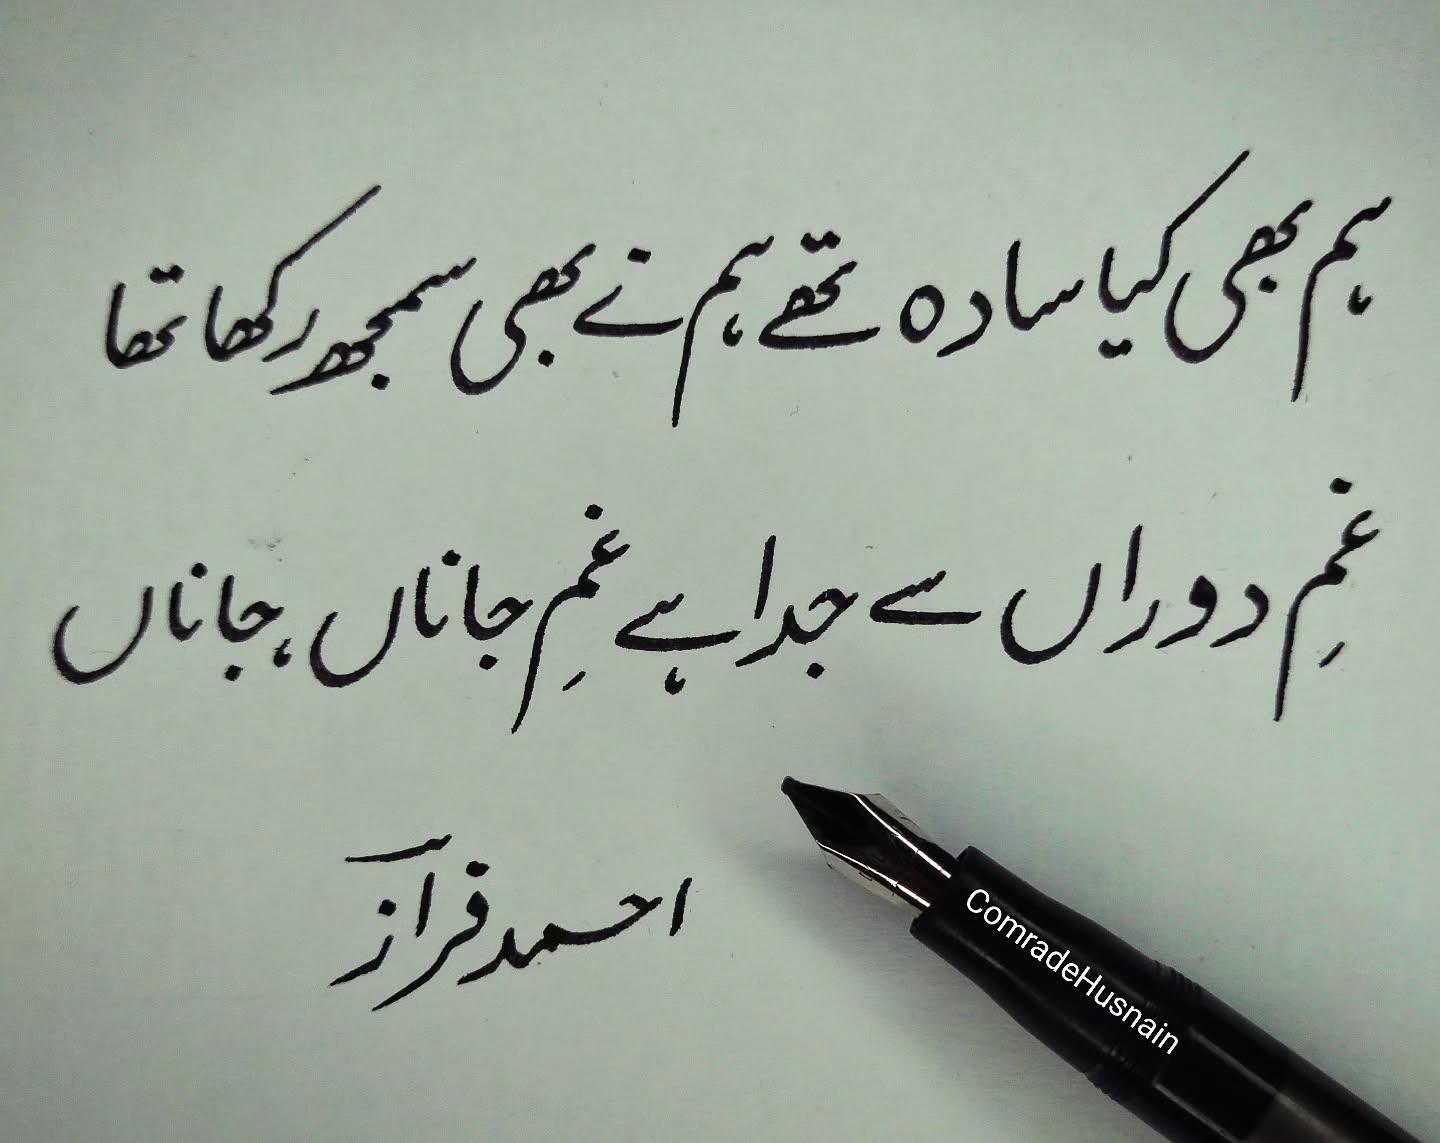 ہم بھی کیا سادہ تھے ہم نے بھی سمجھ رکھا تھا
غمِ دوراں سے جدا ہے غمِ جاناں، جاناں
احمد فرازؔ
ComradeHusnain